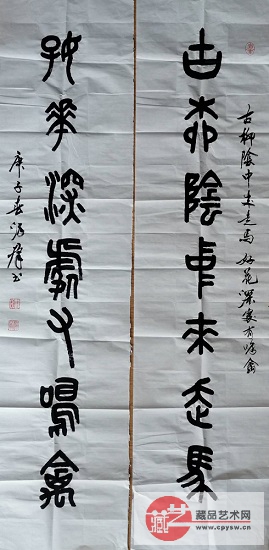 古柳陰中來走馬
古柳陰中來走馬 好花深處有鳴禽
好花深處有鳴禽
庚子春
藏品艺术网
www.cpysw.cn